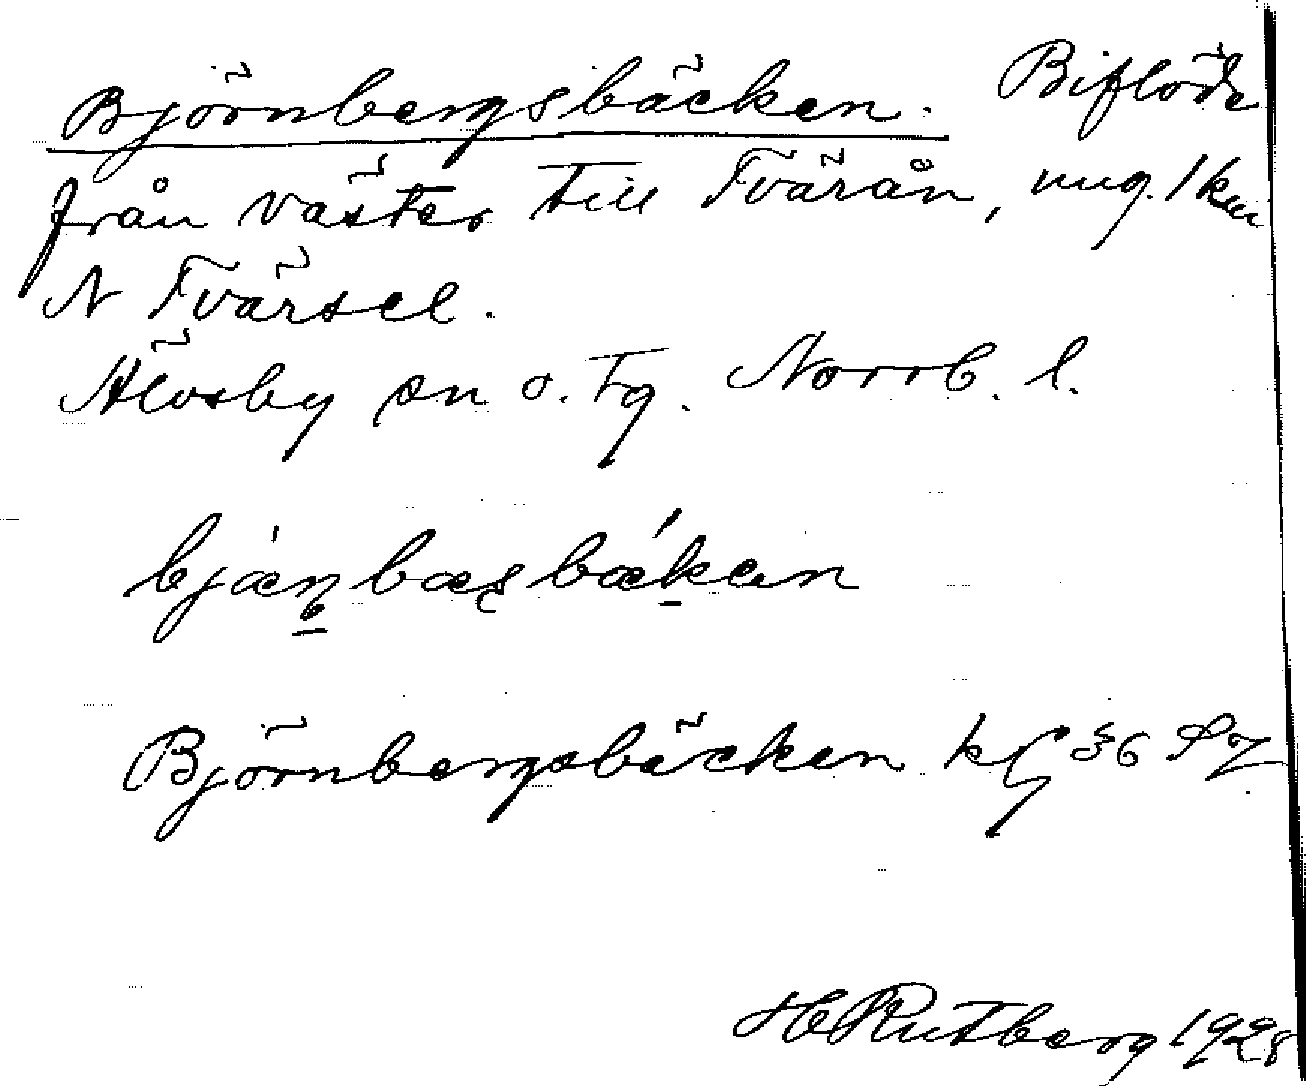 Björnbergsbäcken. Biflöde
från väster till Tvärån, ung. 1 km
N Tvärsel.
Älvsby sn o. tg. Norrb. l.
bjæ̀n̥bæsbǽkan
Björnbergsbäcken kfg 36
H Rutberg 1928